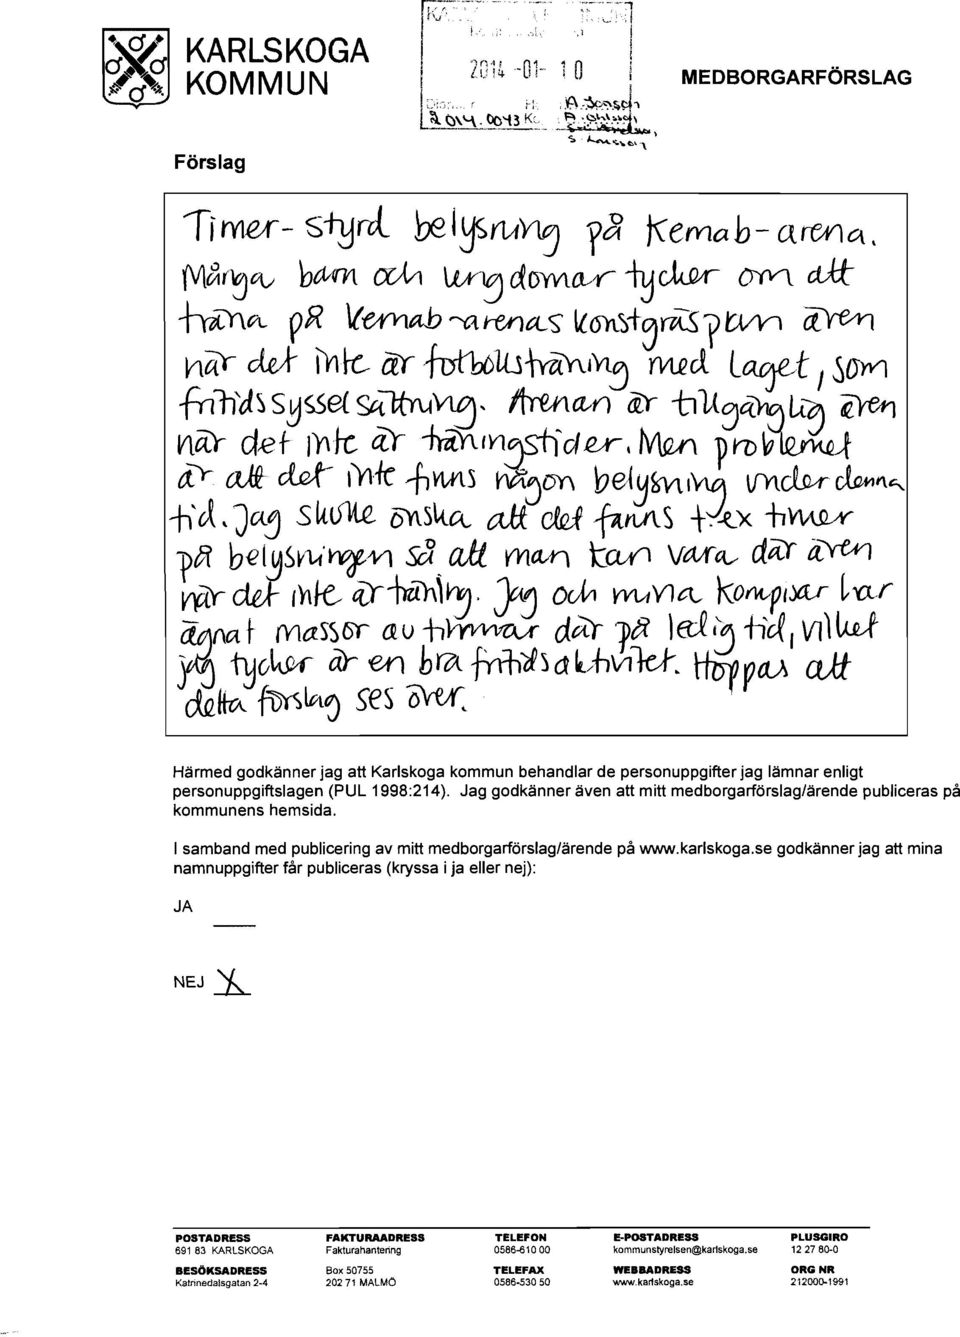 KARLSKOGA
KOMMUN
2014 -01- 10
A. Jonsson
2014.0043
A. Ohlsson
S. Larsson
MEDBORGARFÖRSLAG
Förslag
Timer-styrd belysning på Kemab-arena.
Många barn och ungdomar tycker om att
träna på Kemab-arenas konstgräsplan även
när det inte är fotbollsträning med laget, som
fritidssysselsättning. Arenan är tillgänglig även
när det inte är träningstider. Men problemet
är att det inte finns någon belysning under denna
tid. Jag skulle önska att det fanns t.ex timer
på belysningen så att man kan vara där även
när det inte är träning. Jag och mina kompisar har
ägnat massor av timmar där på ledig tid, vilket
jag tycker är en bra fritidsaktivitet. Hoppas att
detta förslag ses över.
Härmed godkänner jag att Karlskoga kommun behandlar de personuppgifter jag lämnar enligt
personuppgiftslagen (PUL 1998:214). Jag godkänner även att mitt medborgarförslag/ärende publiceras på
kommunens hemsida.
I samband med publicering av mitt medborgarförslag/ärende på www.karlskoga.se godkänner jag att mina
namnuppgifter får publiceras (kryssa i ja eller nej):
JA
NEJ X
POSTADRESS FAKTURAADRESS TELEFON E-POSTADRESS PLUSGIRO
691 83 KARLSKOGA Fakturahantering 0586-610 00 kommunstyrelsen@karlskoga.se 12 27 80-0
BESÖKSADRESS Box 50755 TELEFAX WEBBADRESS ORG NR
Katrinedalsgatan 2-4 202 71 MALMÖ 0586-530 50 www.karlskoga.se 212000-1991